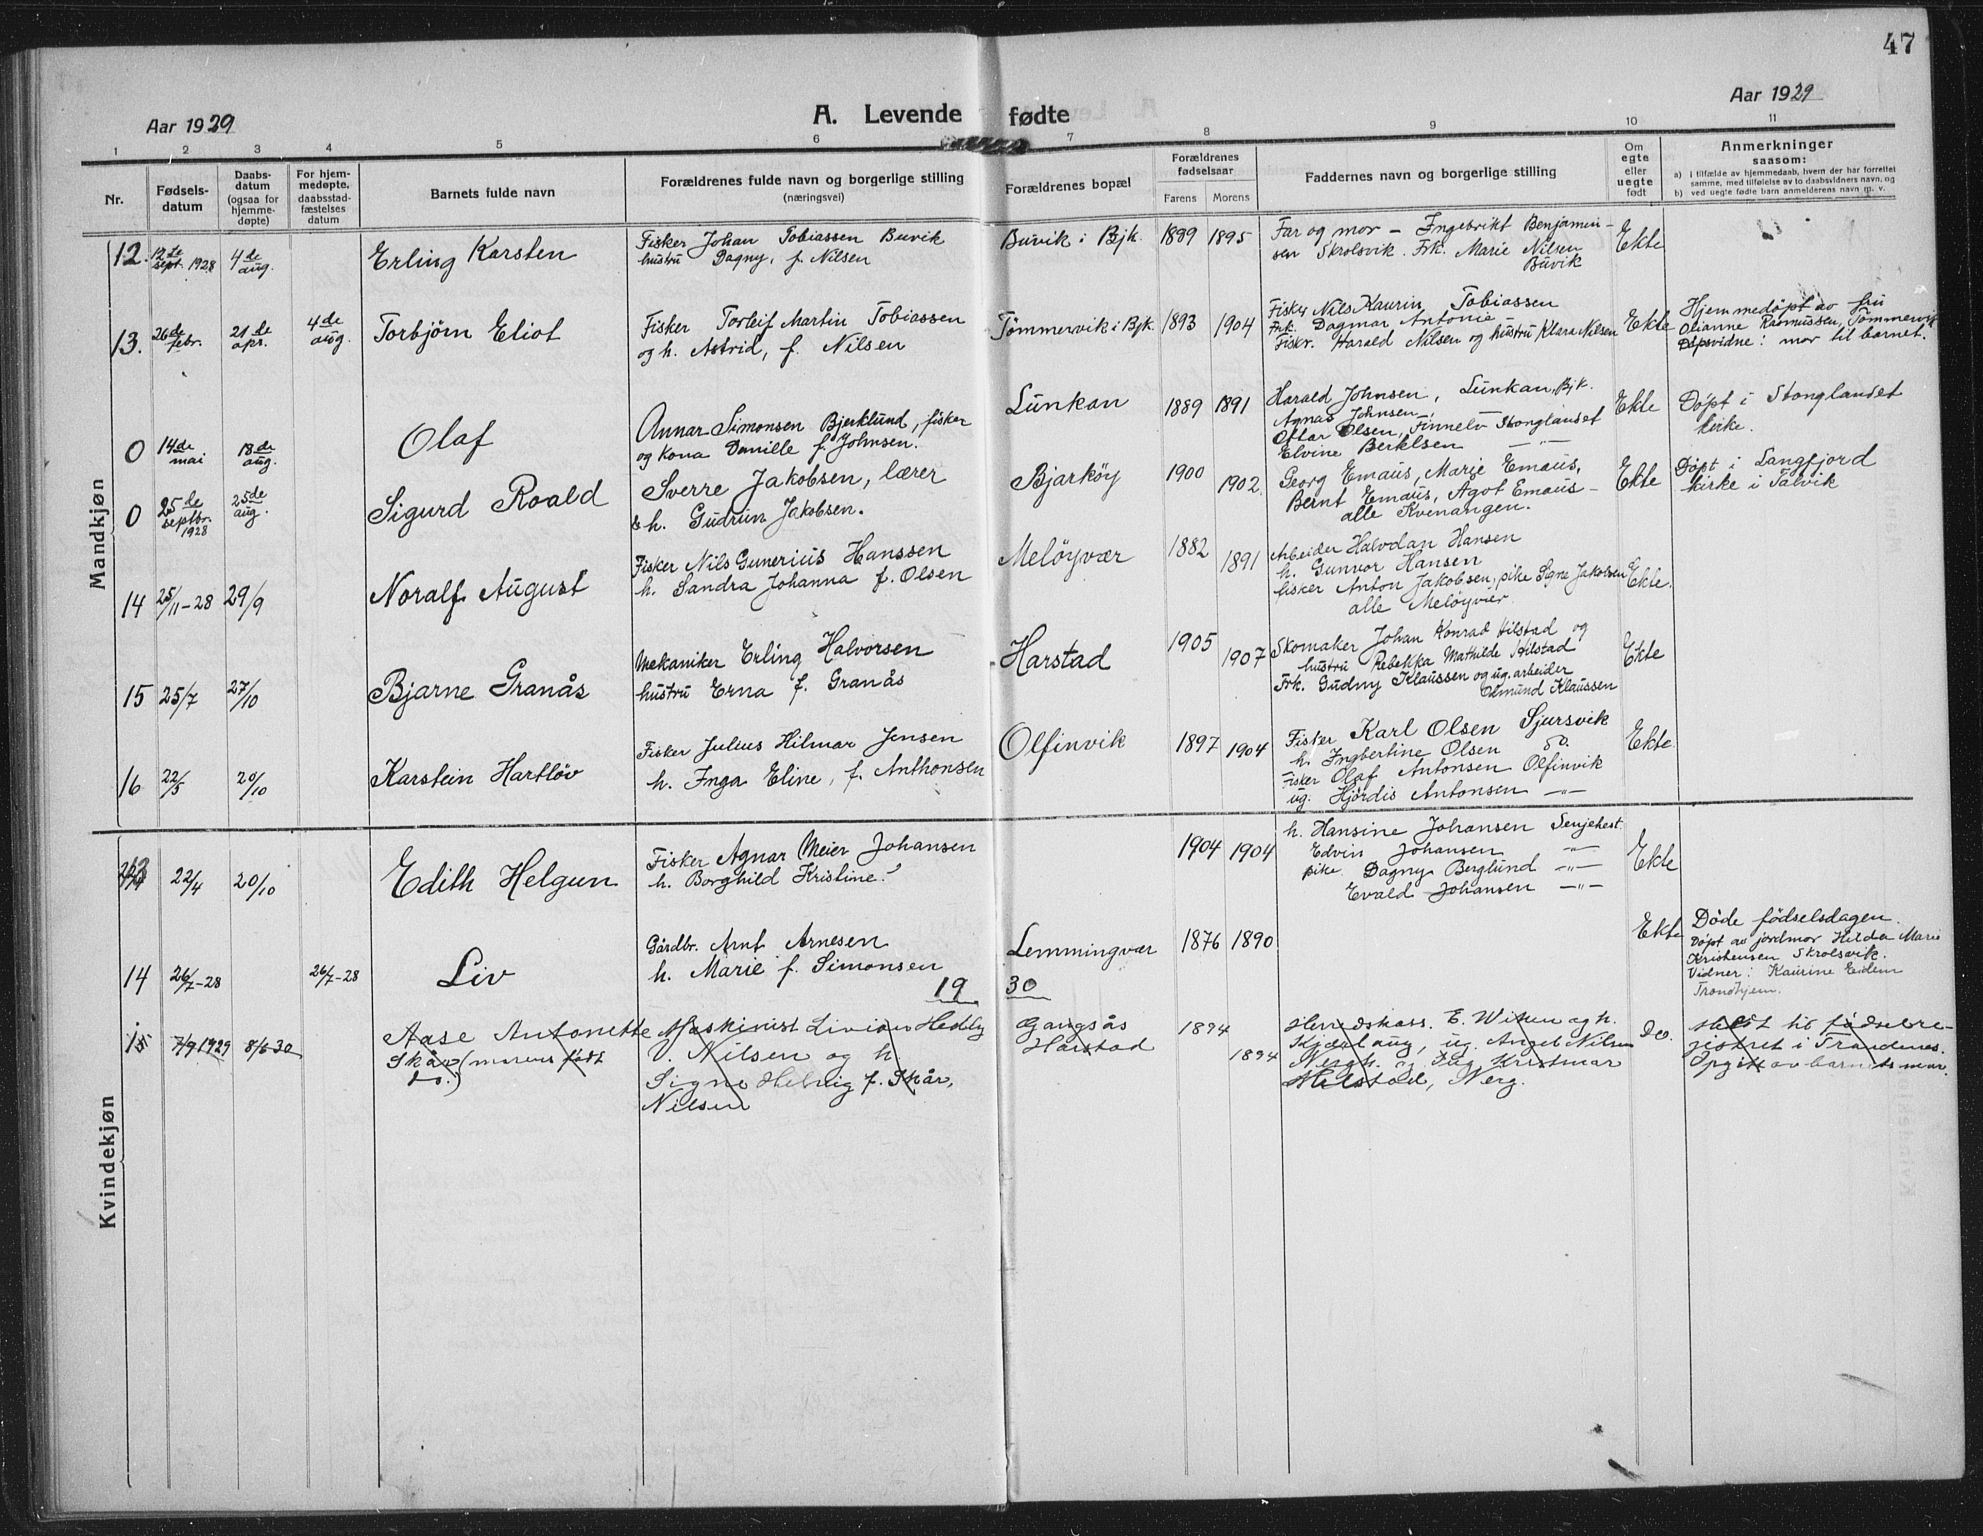 47
Aar 1929
A. Levende fødte
Aar 1929
1 2 3 4 5 6 7 8 9 10 11
Nr.
Fødsels-
datum
Daabs-
datum
(ogsaa for
hjemme-
døpte)
For hjem-
medøpte,
daabsstad-
fæstelses
datum
Barnets fulde navn
Forældrenes fulde navn og borgerlige stilling
(næringsvei)
Forældrenes bopæl
Forældrenes
fødselsaar
Farens Morens
Faddernes navn og borgerlige stilling
Om
egte
eller
uegte
født
Anmerkninger
saasom:
a) i tilfælde av hjemmedaab, hvem der har forrettet
samme, med tilføielse av to daabsvidners navn, og
b) ved uegte føde barn anmelderens navn m. v.
Mandkjøn
12. 12te
sept. 1928
4de
aug.
Erling Karsten
Fisker Johan Tobiassen Buvik
hustru Dagny, f. Nilsen
Buvik i Bjk. 1899 1895
Far og mor – Ingebrikt Benjamin-
sen Skrolsvik. Frk. Marie Nilsen
Buvik
Ekte
13. 26de
febr.
21de
apr.
4de
aug.
Torbjörn Eliot
Fisker Torleif Martin Tobiassen
og h. Astrid, f. Nilsen
Tømmervik i Bjk. 1893 1904
Fisker Nils Kaurin Tobiassen
Frk. Dagmar Antonie
Fiskr. Harald Nilsen og hustru Klara Nilsen
Ekte
Hjemmedøpt av fru
Olianne Rasmussen, Tømmervik
Dåpsvidne: mor til barnet.
0 14de
mai
18de
aug.
Olaf
Annar Simonsen Bjerklund, fisker
og kona Danille f. Johnsen.
Lunkan 1889 1891
Harald Johnsen, Lunkan, Bjk.
Agnas Johnsen, —
Oftar Olsen, Finnelv Stonglandet
Elvine Bertelsen —"—
Ekte
Døpt i Stonglandet
kirke.
0 25de
septbr.
1928
25de
aug.
Sigurd Roald
Sverre Jakobsen, lærer
& h. Gudrun Jakobsen.
Bjarköy 1900 1902.
Georg Emaus, Marie Emaus,
Bernt Emaus, Agot Emaus –
alle Kvenangen.
Ekte
Døpt i Langfjord
kirke i Talvik
14 25/11-28 29/9
Noralf August
Fisker Nils Gunerius Hanssen
h. Sandra Johanna f. Olsen
Meløyvær 1882 1891
Arbeider Halvdan Hansen
h. Gunvor Hansen
fisker Anton Jakobsen, pike Signe Jakobsen
alle Meløyvær
Ekte.
15 25/7 27/10
Bjarne Granås
Mekaniker Erling Halvorsen
hustru Erna f. Granås
Harstad 1905 1907
Skomaker Johan Konrad Hilstad og
hustru Rebekka Mathilde Hilstad
Frk. Gudny Klaussen og ug. arbeider
Edmund Klaussen
Ekte
16 22/5 20/10
Karstein Hartløv
Fisker Julius Hilmar Jensen
h. Inga Eline, f. Anthonsen
Olfinvik 1897 1904
Fisker Karl Olsen Sjursvik
h. Ingbertine Olsen do.
Fisker Olaf Antonsen Olfinvik
ug. Hjördis Antonsen —"—
Ekte
Kvindekjøn
13 22/4 20/10
Edith Helgun
Fisker Agnar Meier Johansen
h. Borghild Kristine?
1904 1904
h. Hansine Johansen Senjehest.
Edvin Johansen —"—
pike. Dagny Berglund —"—
Evald Johansen —"—
Ekte
14 26/7-28 26/7-28
Liv
Gårdbr. Arnt Arnesen
h. Marie f. Simonsen
Lemmingvær 1876 1890
Ekte
Døde fødselsdagen.
Døpt av jordmor Hilda Marie
Kristensen Skrolsvik.
Vidner: Kaurine Eidem
Trondhjem.
19 30
15 7/9 1929 8/6-30
Aase Antonette
Skår (morens født
do.)
Maskinist Livion Hedley
V. Nilsen og h.
Signe Helvig f. Skår,
Nilsen
Gangsås
Harstad
1894 1894
E. Witsen og h.
Kjærlaug, ug. Angel Nilsen
Nergh. og Dag Kristmar
Hilstad, Nerg.
Do.
Meldt til fødselsre-
gistret i Trondenes.
Opgitt av barnets mor.